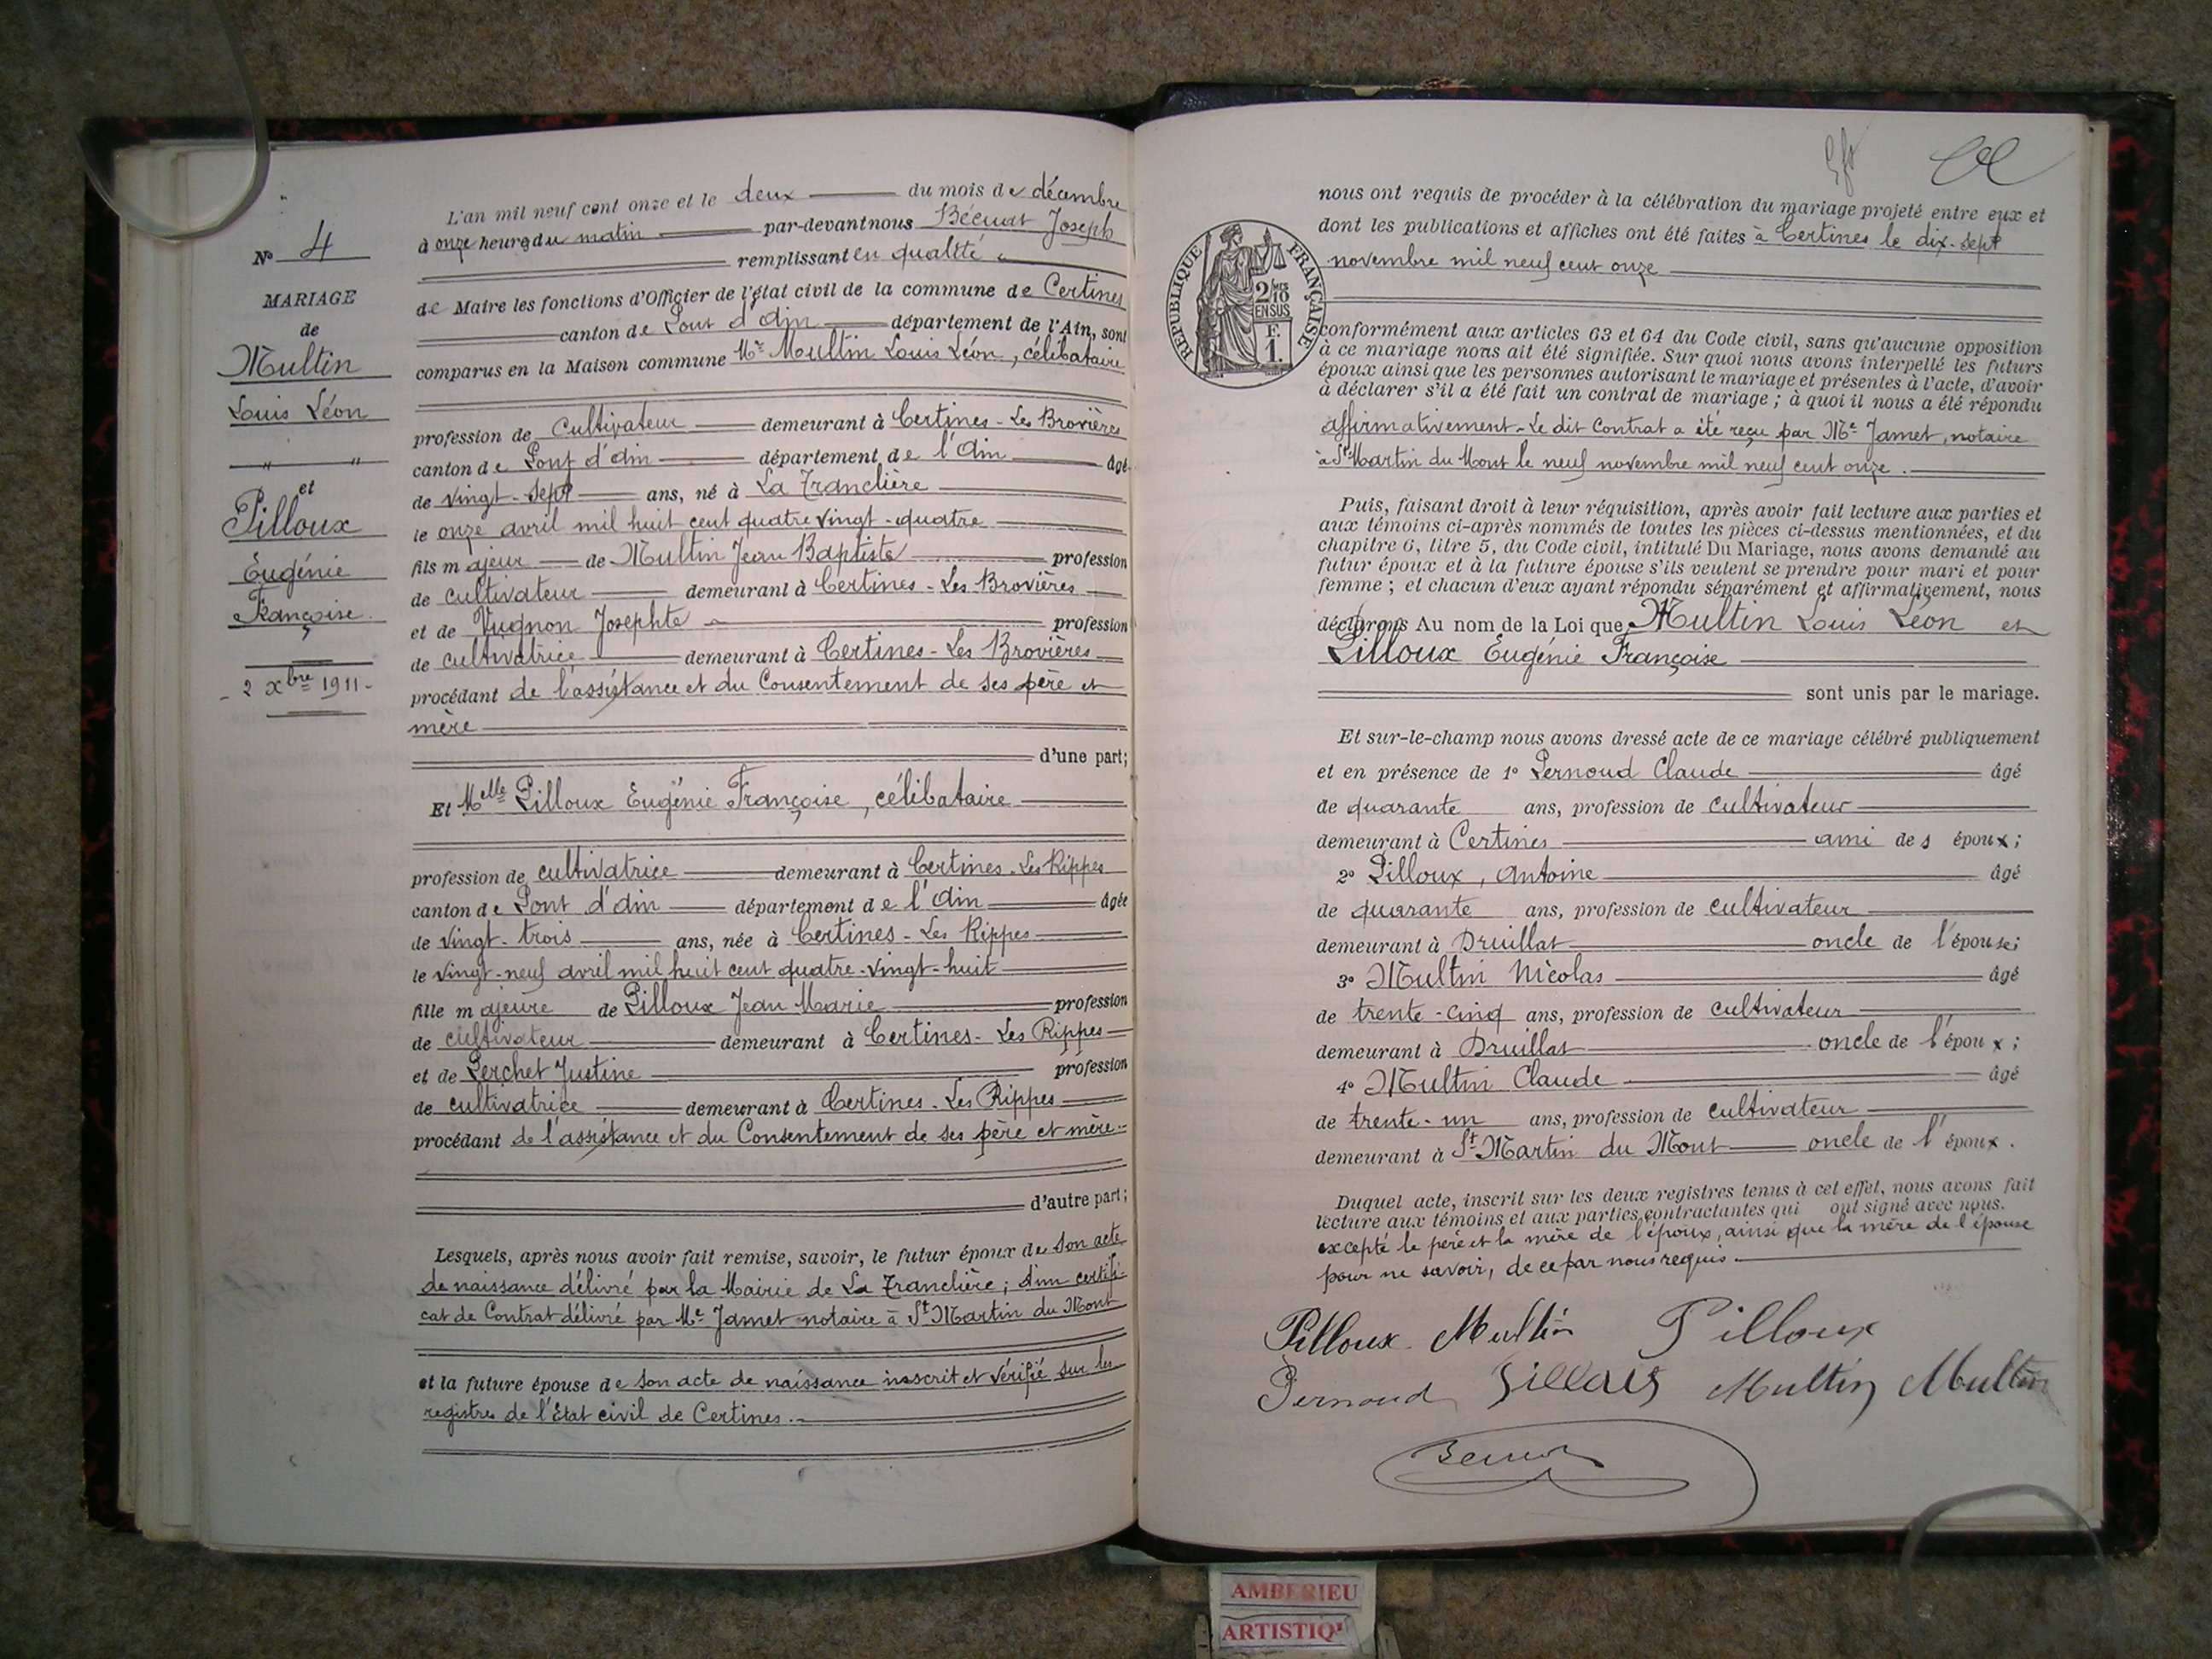 N° 4
MARIAGE
de
Multin
Louis Léon
et
Pilloux
Eugénie
Françoise.
- 2 xbre 1911 -
L'an mil neuf cent onze et le deux du mois de décembre
à onze heures du matin par-devant nous Bécuat Joseph
remplissant en qualité
de Maire les fonctions d'Officier de l'état civil de la commune de Certines
canton de Pont d'Ain département de l'Ain, sont
comparus en la Maison commune Mr Multin Louis Léon, célibataire
profession de Cultivateur demeurant à Certines - Les Brovières
canton de Pont d'Ain département de l'Ain âgé
de vingt-sept ans, né à La Tranclière
le onze avril mil huit cent quatre vingt-quatre
fils majeur de Multin Jean Baptiste profession
de cultivateur demeurant à Certines - Les Brovières
et de Vugnon Josephte profession
de cultivatrice demeurant à Certines - Les Brovières
procédant de l'assistance et du Consentement de ses père et
mère
d'une part;
Et Melle Pilloux Eugénie Françoise, célibataire
profession de cultivatrice demeurant à Certines - Les Rippes
canton de Pont d'Ain département de l'Ain âgée
de vingt-trois ans, née à Certines - Les Rippes
le vingt-neuf avril mil huit cent quatre-vingt-huit
fille majeure de Pilloux Jean Marie profession
de cultivateur demeurant à Certines - Les Rippes
et de Perchet Justine profession
de cultivatrice demeurant à Certines - Les Rippes
procédant de l'assistance et du Consentement de ses père et mère
d'autre part;
Lesquels, après nous avoir fait remise, savoir, le futur époux de son acte
de naissance délivré par la Mairie de La Tranclière; d'un certifi-
cat de Contrat délivré par Me Jamet notaire à St Martin du Mont
et la future épouse de son acte de naissance inscrit et vérifié sur les
registres de l'Etat civil de Certines.
nous ont requis de procéder à la célébration du mariage projeté entre eux et
dont les publications et affiches ont été faites à Certines le dix-sept
novembre mil neuf cent onze
RÉPUBLIQUE FRANÇAISE
2/10
EN SUS
F.
1.
conformément aux articles 63 et 64 du Code civil, sans qu'aucune opposition
à ce mariage nous ait été signifiée. Sur quoi nous avons interpellé les futurs
époux ainsi que les personnes autorisant le mariage et présentes à l'acte, d'avoir
à déclarer s'il a été fait un contrat de mariage; à quoi il nous a été répondu
affirmativement - Le dit Contrat a été reçu par Me Jamet, notaire
à St Martin du Mont le neuf novembre mil neuf cent onze.
Puis, faisant droit à leur réquisition, après avoir fait lecture aux parties et
aux témoins ci-après nommés de toutes les pièces ci-dessus mentionnées, et du
chapitre 6, titre 5, du Code civil, intitulé Du Mariage, nous avons demandé au
futur époux et à la future épouse s'ils veulent se prendre pour mari et pour
femme; et chacun d'eux ayant répondu séparément et affirmativement, nous
déclarons Au nom de la Loi que Multin Louis Léon et
Pilloux Eugénie Françoise
sont unis par le mariage.
Et sur-le-champ nous avons dressé acte de ce mariage célébré publiquement
et en présence de 1° Pernoud Claude âgé
de quarante ans, profession de cultivateur
demeurant à Certines ami des époux;
2° Pilloux, Antoine âgé
de quarante ans, profession de cultivateur
demeurant à Druillat oncle de l'épouse;
3° Multin Nicolas âgé
de trente-cinq ans, profession de cultivateur
demeurant à Druillat oncle de l'époux;
4° Multin Claude âgé
de trente-un ans, profession de cultivateur
demeurant à St Martin du Mont oncle de l'époux.
Duquel acte, inscrit sur les deux registres tenus à cet effet, nous avons fait
lecture aux témoins et aux parties contractantes qui ont signé avec nous.
excepté le père et la mère de l'époux, ainsi que la mère de l'épouse
pour ne savoir, de ce par nous requis.
Pilloux Multin Pilloux
Pernoud Pilloux Multin Multin
AMBERIEU
ARTISTIQ